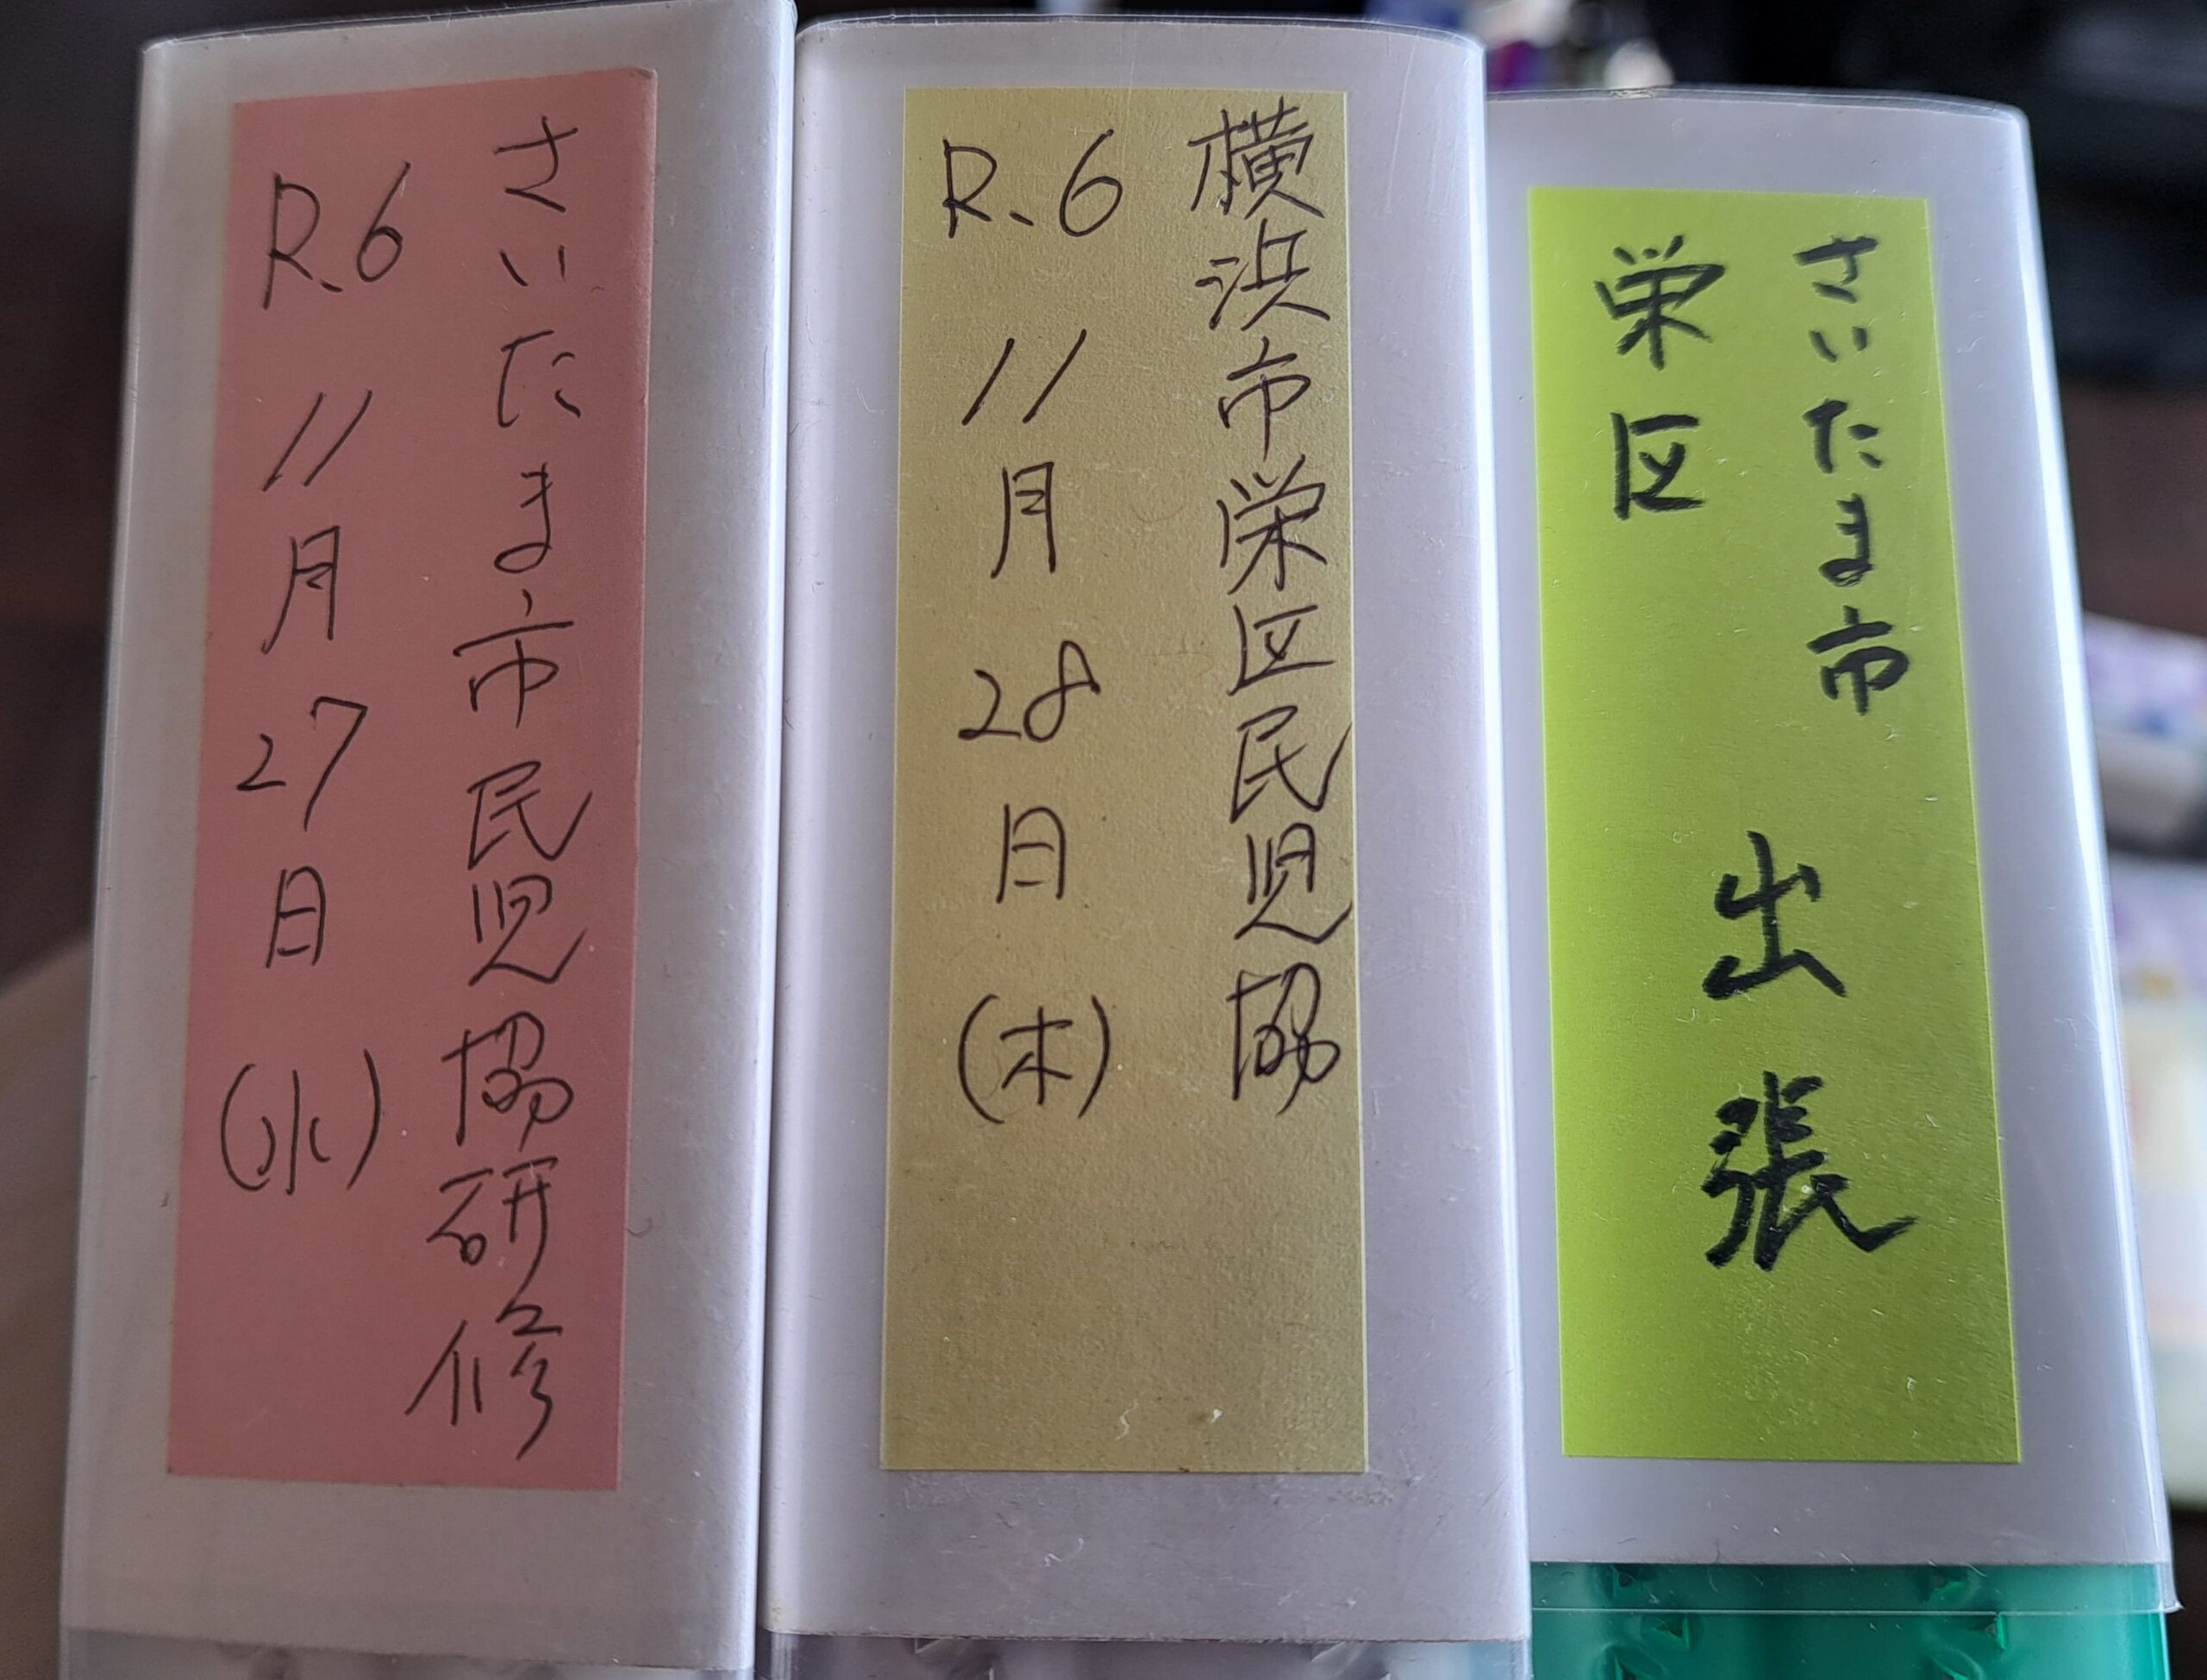 さいたま市民児協研修
R.6 11月27日(水)
横浜市栄区民児協
R.6 11月28日(木)
さいたま市
栄区
出張